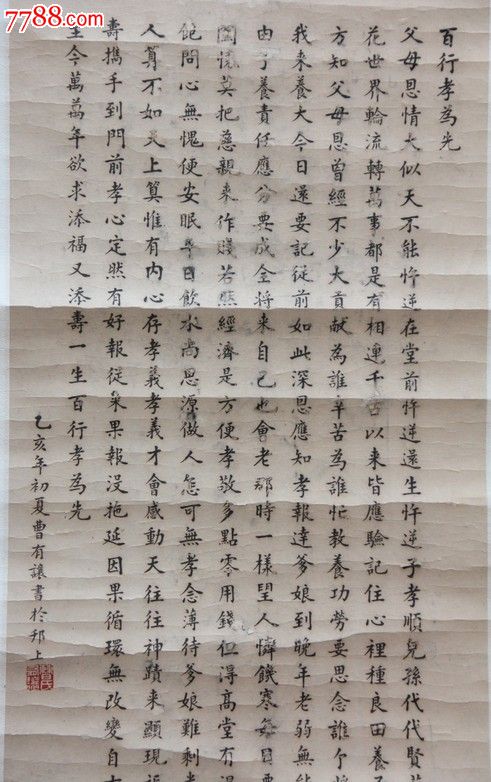 7788.com
百行孝為先
父母恩情大似天不能忤逆在堂前忤逆還生忤逆子孝順兒孫代代賢
花世界輪流轉萬事都是有相連千古以來皆應驗記住心裡種良田養子
方知父母恩曾經不少大貢献為誰辛苦為誰忙教養功勞要思念誰个將
我来養大今日還要記從前如此深恩應知孝報達爹娘到晚年老弱無能
由子養責任應分要成全將来自己也會老那時一樣望人憐饑寒每日要
關懷莫把慈親来作賤若然經濟是方便孝敬多點零用錢仁得高堂有溫
飽問心無愧便安眠平日飲水尚思源做人怎可無孝念薄待爹娘難剩
人算不如天上算惟有內心存孝義孝義才會感動天往往神蹟来顯現福
壽擕手到門前孝心定然有好報從来果報没拖延因果循環無改變自古
至今萬萬年欲求添福又添壽一生百行孝為先
乙亥年初夏曹有讓書於邗上